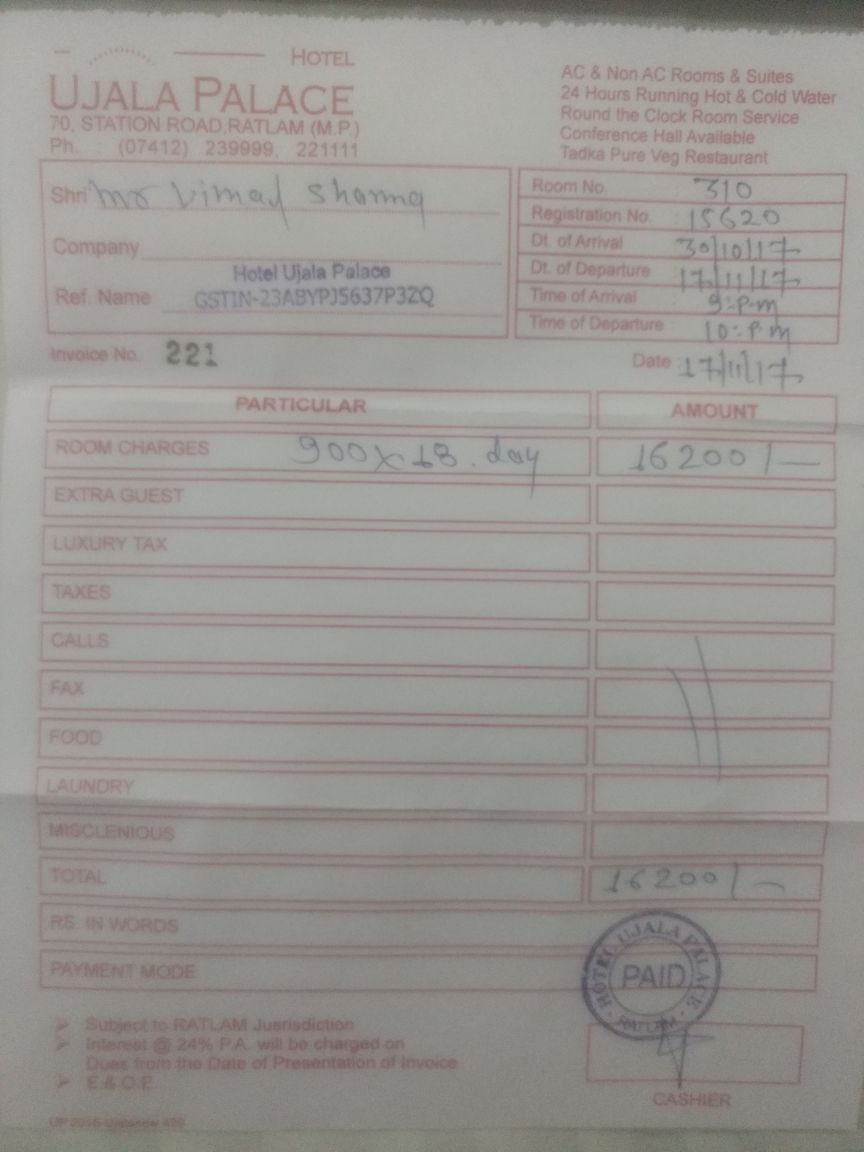 HOTEL
UJALA PALACE
70, STATION ROAD, RATLAM (M.P.)
Ph. : (07412) 239999, 221111
AC & Non AC Rooms & Suites
24 Hours Running Hot & Cold Water
Round the Clock Room Service
Conference Hall Available
Tadka Pure Veg Restaurant
Shri Mr Vimal Sharma
Company
Hotel Ujala Palace
Ref. Name GSTIN-23ABYPJ5637P3ZQ
Room No. 310
Registration No. 15620
Dt. of Arrival 30/10/17
Dt. of Departure 17/11/17
Time of Arrival : 9:P.m
Time of Departure : 10:P.m
Invoice No. 221
Date 17/11/17
PARTICULAR AMOUNT
ROOM CHARGES 900 x 18. day 16200/-
EXTRA GUEST
LUXURY TAX
TAXES
CALLS
FAX
FOOD
LAUNDRY
MISCLENIOUS
TOTAL 16200/-
RS. IN WORDS
PAYMENT MODE
HOTEL UJALA PALACE
PAID
RATLAM
Subject to RATLAM Jusrisdiction
Interest @ 24% P.A. will be charged on
Dues from the Date of Presentation of Invoice
E.& O.E.
CASHIER